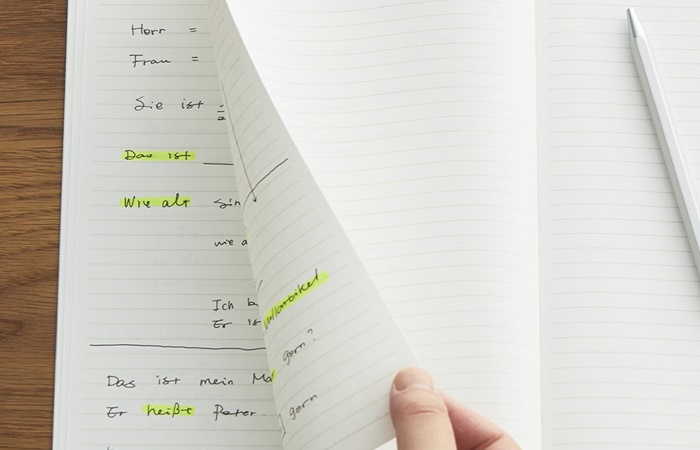 Herr =
Frau =
Sie ist
Das ist
Wie alt Sin
wie a
Ich b
Er is
Nullartikel
gern?
Das ist mein Ma
gern
Er heißt Peter.